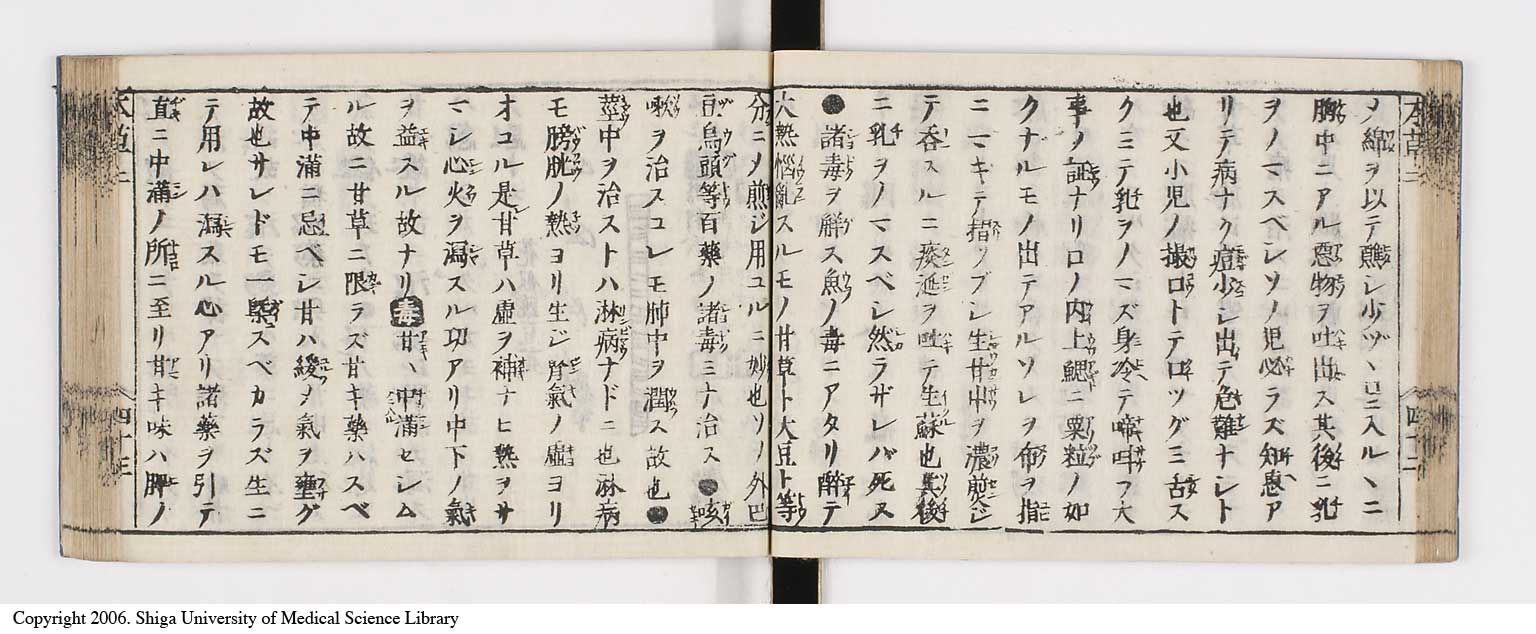 本草二
四十二
ノ綿ヲ以テ醮シ少ヅヽ口ニ入ルヽニ
胸中ニアル惡物ヲ吐出ス其後ニ乳
ヲノマスベシソノ児必ラズ知惠ア
リテ病ナク痘少シ出テ危難ナシト
也又小児ノ撮口トテ口ツグミ舌ス
クミテ乳ヲノマズ身冷テ啼呌フ大
事ノ證ナリ口ノ内上鰓ニ粟粒ノ如
クナルモノ出テアルソレヲ布ヲ指
ニマキテ揩ツブシ生甘中ヲ濃煎ジ
テ呑スルニ痰涎ヲ吐テ生蘇也其後
ニ乳ヲノマスベシ然ラザレバ死ス
●諸毒ヲ觧ス魚ノ毒ニアタリ醉テ
大熱惱亂スルモノ甘草ト大豆ト等
分ニメ煎ジ用ユルニ妙也ソノ外巴
豆烏頭等百藥ノ諸毒ミナ治ス●咳
嗽ヲ治スコレモ肺中ヲ潤ス故也●
莖中ヲ治ストハ淋病ナドニ也淋病
モ膀胱ノ熱ヨリ生ジ腎氣ノ虚ヨリ
オコル是甘草ハ虚ヲ補ナヒ熱ヲサ
マシ心火ヲ瀉スル功アリ中下ノ氣
ヲ益スル故ナリ毒甘ハ中滿セシム
ル故ニ甘草ニ限ラズ甘キ藥ハスベ
テ中滿ニ忌ベシ甘ハ緩ノ氣ヲ壅グ
故也サレドモ一槩スベカラズ生ニ
テ用レハ瀉スル心アリ諸藥ヲ引テ
直ニ中滿ノ所ニ至リ甘キ味ハ脾ノ
本草二
四十三
Copyright 2006. Shiga University of Medical Science Library